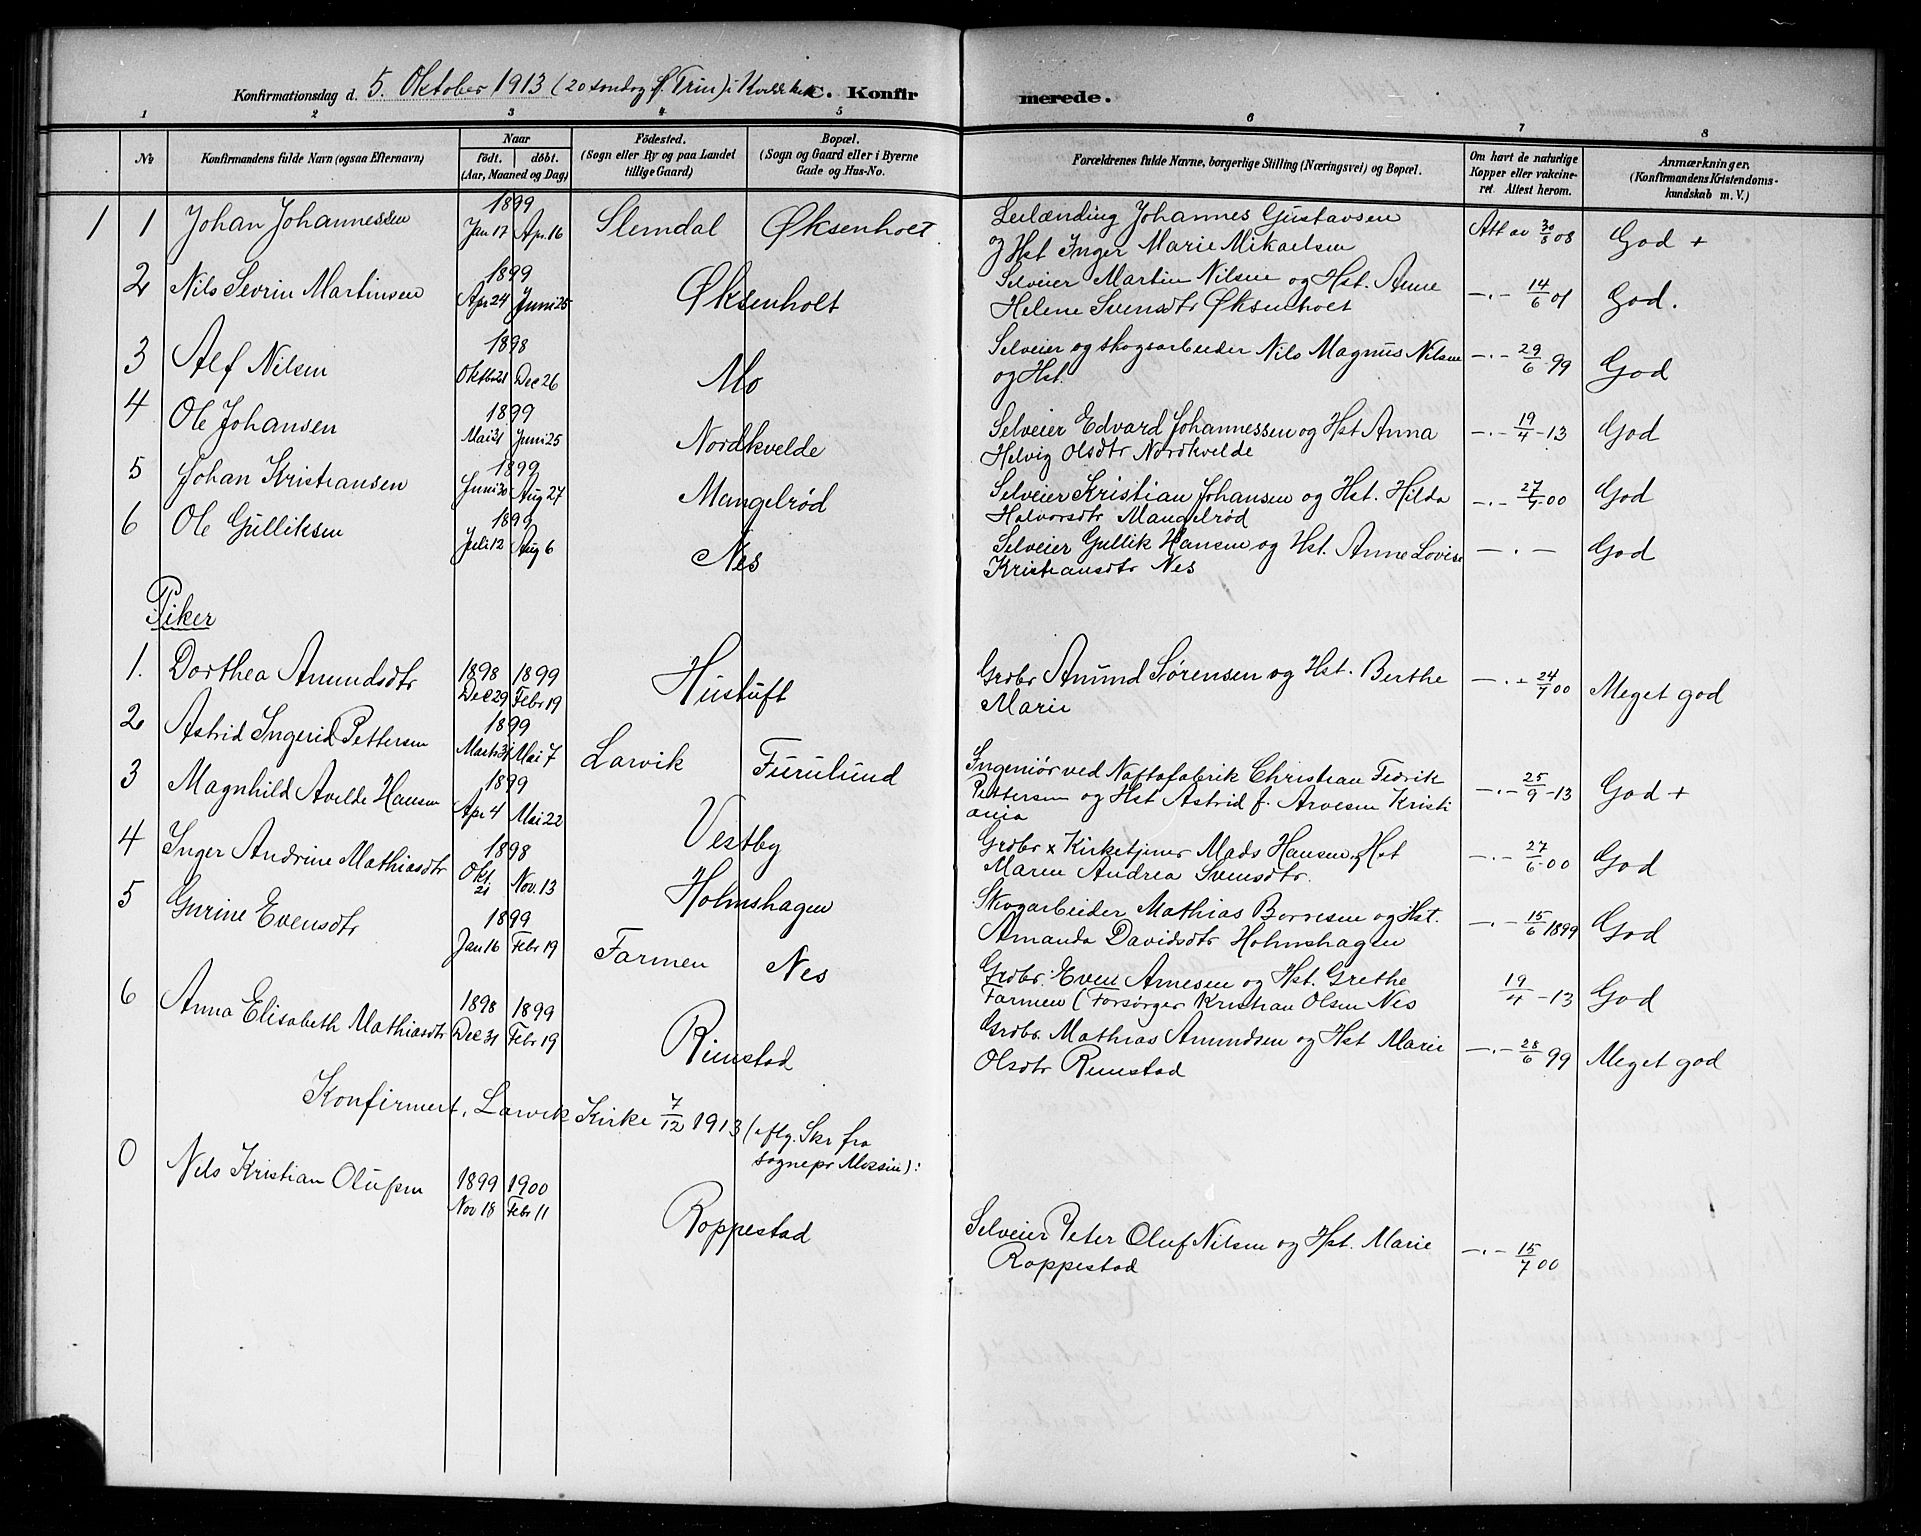 Konfirmationsdag d. 5. Oktober 1913 (20 søndag f. Trin) i Kvelde C. Konfirmerede.
1 2 3 4 5 6 7 8
No
Konfirmandens fulde Navn (ogsaa Efternavn)
Naar
født. døbt.
(Aar, Maaned og Dag)
Födested.
(Sogn eller By og paa Landet
tillige Gaard)
Bopæl.
(Sogn og Gaard eller i Byerne
Gade og Hus-No.
Forældrenes fulde Navne, borgerlige Stilling (Næringsvei) og Bopæl.
Om havt de naturlige
Kopper eller vakcine-
ret. Attest herom.
Anmærkninger,
(Konfirmandens Kristendoms-
kundskab m. V.)
1 1 Johan Johannessen 1899 Jan 17 Apr. 16 Slemdal Øksenholt Leilænding Johannes Gustavsen
og Hst Inger Marie Mikaelsen Att av 30/8 08 God +
2 Nils Sevrin Martinsen 1899 Apr 24 Juni 25 Øksenholt Selveier Martin Nilsen og Hst. Anne
Helene Svensdtr Øksenholt —.— 14/6 01 God.
3 Alf Nilsen 1898 Oktbr 21 Dec 26 Mo Selveier og skogsarbeider Nils Magnus Nilsen
og Hst. —.— 29/6 99 God
4 Ole Johansen 1899 Mai 21 Juni 25 Nordkvelde Selveier Edvard Johannessen og Hst Anna
Helvig Olsdtr Nordkvelde —.— 19/4 -13 God
5 Johan Kristiansen 1899 Juni 30 Aug 27 Mangelrød Selveier Kristian Johansen og Hst. Hilda
Halvorsdtr Mangelrød —.— 27/7 00 God
6 Ole Gulliksen 1899 Juli 12 Aug 6 Nes Selveier Gullik Hansen og Hst. Anne Lovise
Kristiansdtr Nes — . — God
Piker
1. Dorthea Amundsdtr 1898 Dec 29 1899 Febr 19 Hustuft Grdbr Amund Sørensen og Hst. Berthe
Marie —.— 24/7 00 Meget god
2 Astrid Ingerid Pettersen 1899 Marts 31 Mai 7 Larvik Furulund Ingeniør ved Naftafabrik Christian Fedrik
Pettersen og Hst Astrid f. Arvesen Kristi
ania —.— 25/9 -13 God +
3 Magnhild Avelde Hansen 1899 Apr 4 Mai 22 Vestby Grdbr x Kirketjener Mads Hansen og Hst
Maren Andrea Svensdtr. —.— 27/6 00 God
4 Inger Andrine Mathiasdtr 1898 Okt. 21 Nov. 13 Holmshagen Skogarbeider Mathias Borresen og Hst.
Amanda Davidsdtr Holmshagen —.— 15/6 1899 God
5 Gurine Evensdtr 1899 Jan 16 Febr 19 Farmen Nes Grdbr. Even Arnesen og Hst. Grethe
Farmen (Forsørger Kristian Olsen Nes 19/4 -13 God
6 Anna Elisabeth Mathiasdtr 1898 Dec 31 1899 Febr 19 Rimstad Grdbr. Mathias Amundsen og Hst Marie
Olsdtr Rimstad —.— 28/6 99 Meget god
Konfirmert i Larvik Kirke 7/12 1913 (iflg. Skr fra
sognepr ):
0 Nils Kristian Olufsen 1899 Nov 18 1900 Febr 11 Roppestad Selveier Peter Oluf Nilsen og Hst. Marie
Roppestad —.— 15/7 00